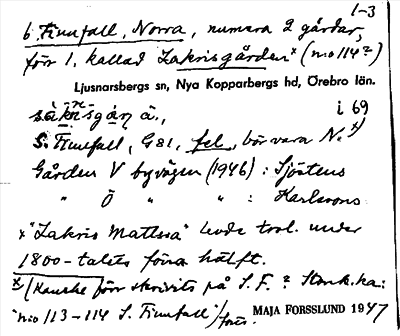 1-3
6. Finnfall, Norra, numera 2 gårdar,
för 1, kallad Zakrisgården x (n:o 114?)
Ljusnarsbergs sn, Nya Kopparbergs hd, Örebro län.
i 69
S. Finnfall, G81, fel, bör vara N. x)
Gården V byvägen (1946): Sjöstens
" Ö " " : Karlssons
x "Zakris Mattssa" levde trol. under
1800-talets förra hälft.
x) (Kanske förr skrivits på S. F.?
"n:o 113-114 S. Finnfall")
MAJA FORSSLUND 1947